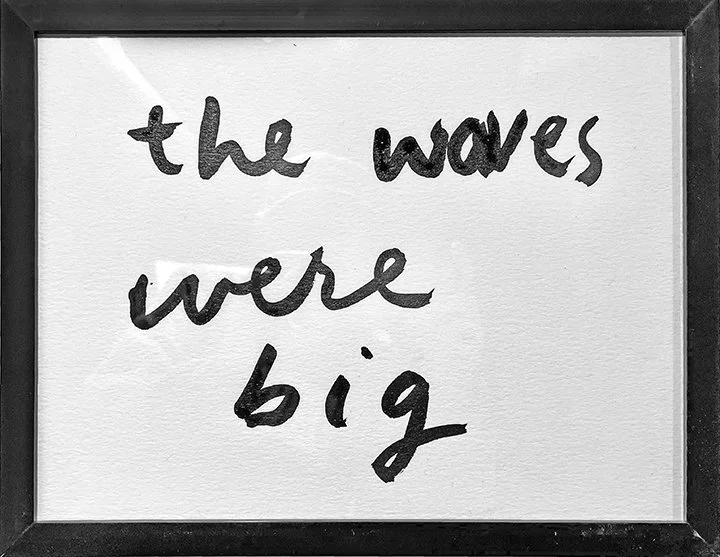 the waves
were
big